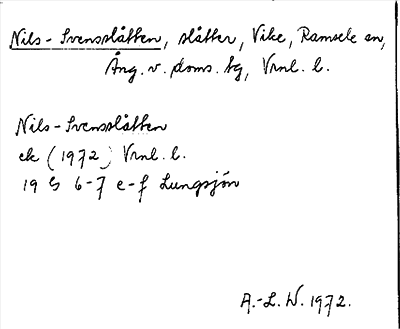 Nils-Svensslåtten, slåtter, Vike, Ramsele sn,
Ång. v. doms. tg, Vrnl. l.
Nils-Svensslåtten
ek (1972) Vrnl. l.
19 G 6-7 e-f Lungsjön
A.-L. W. 1972.